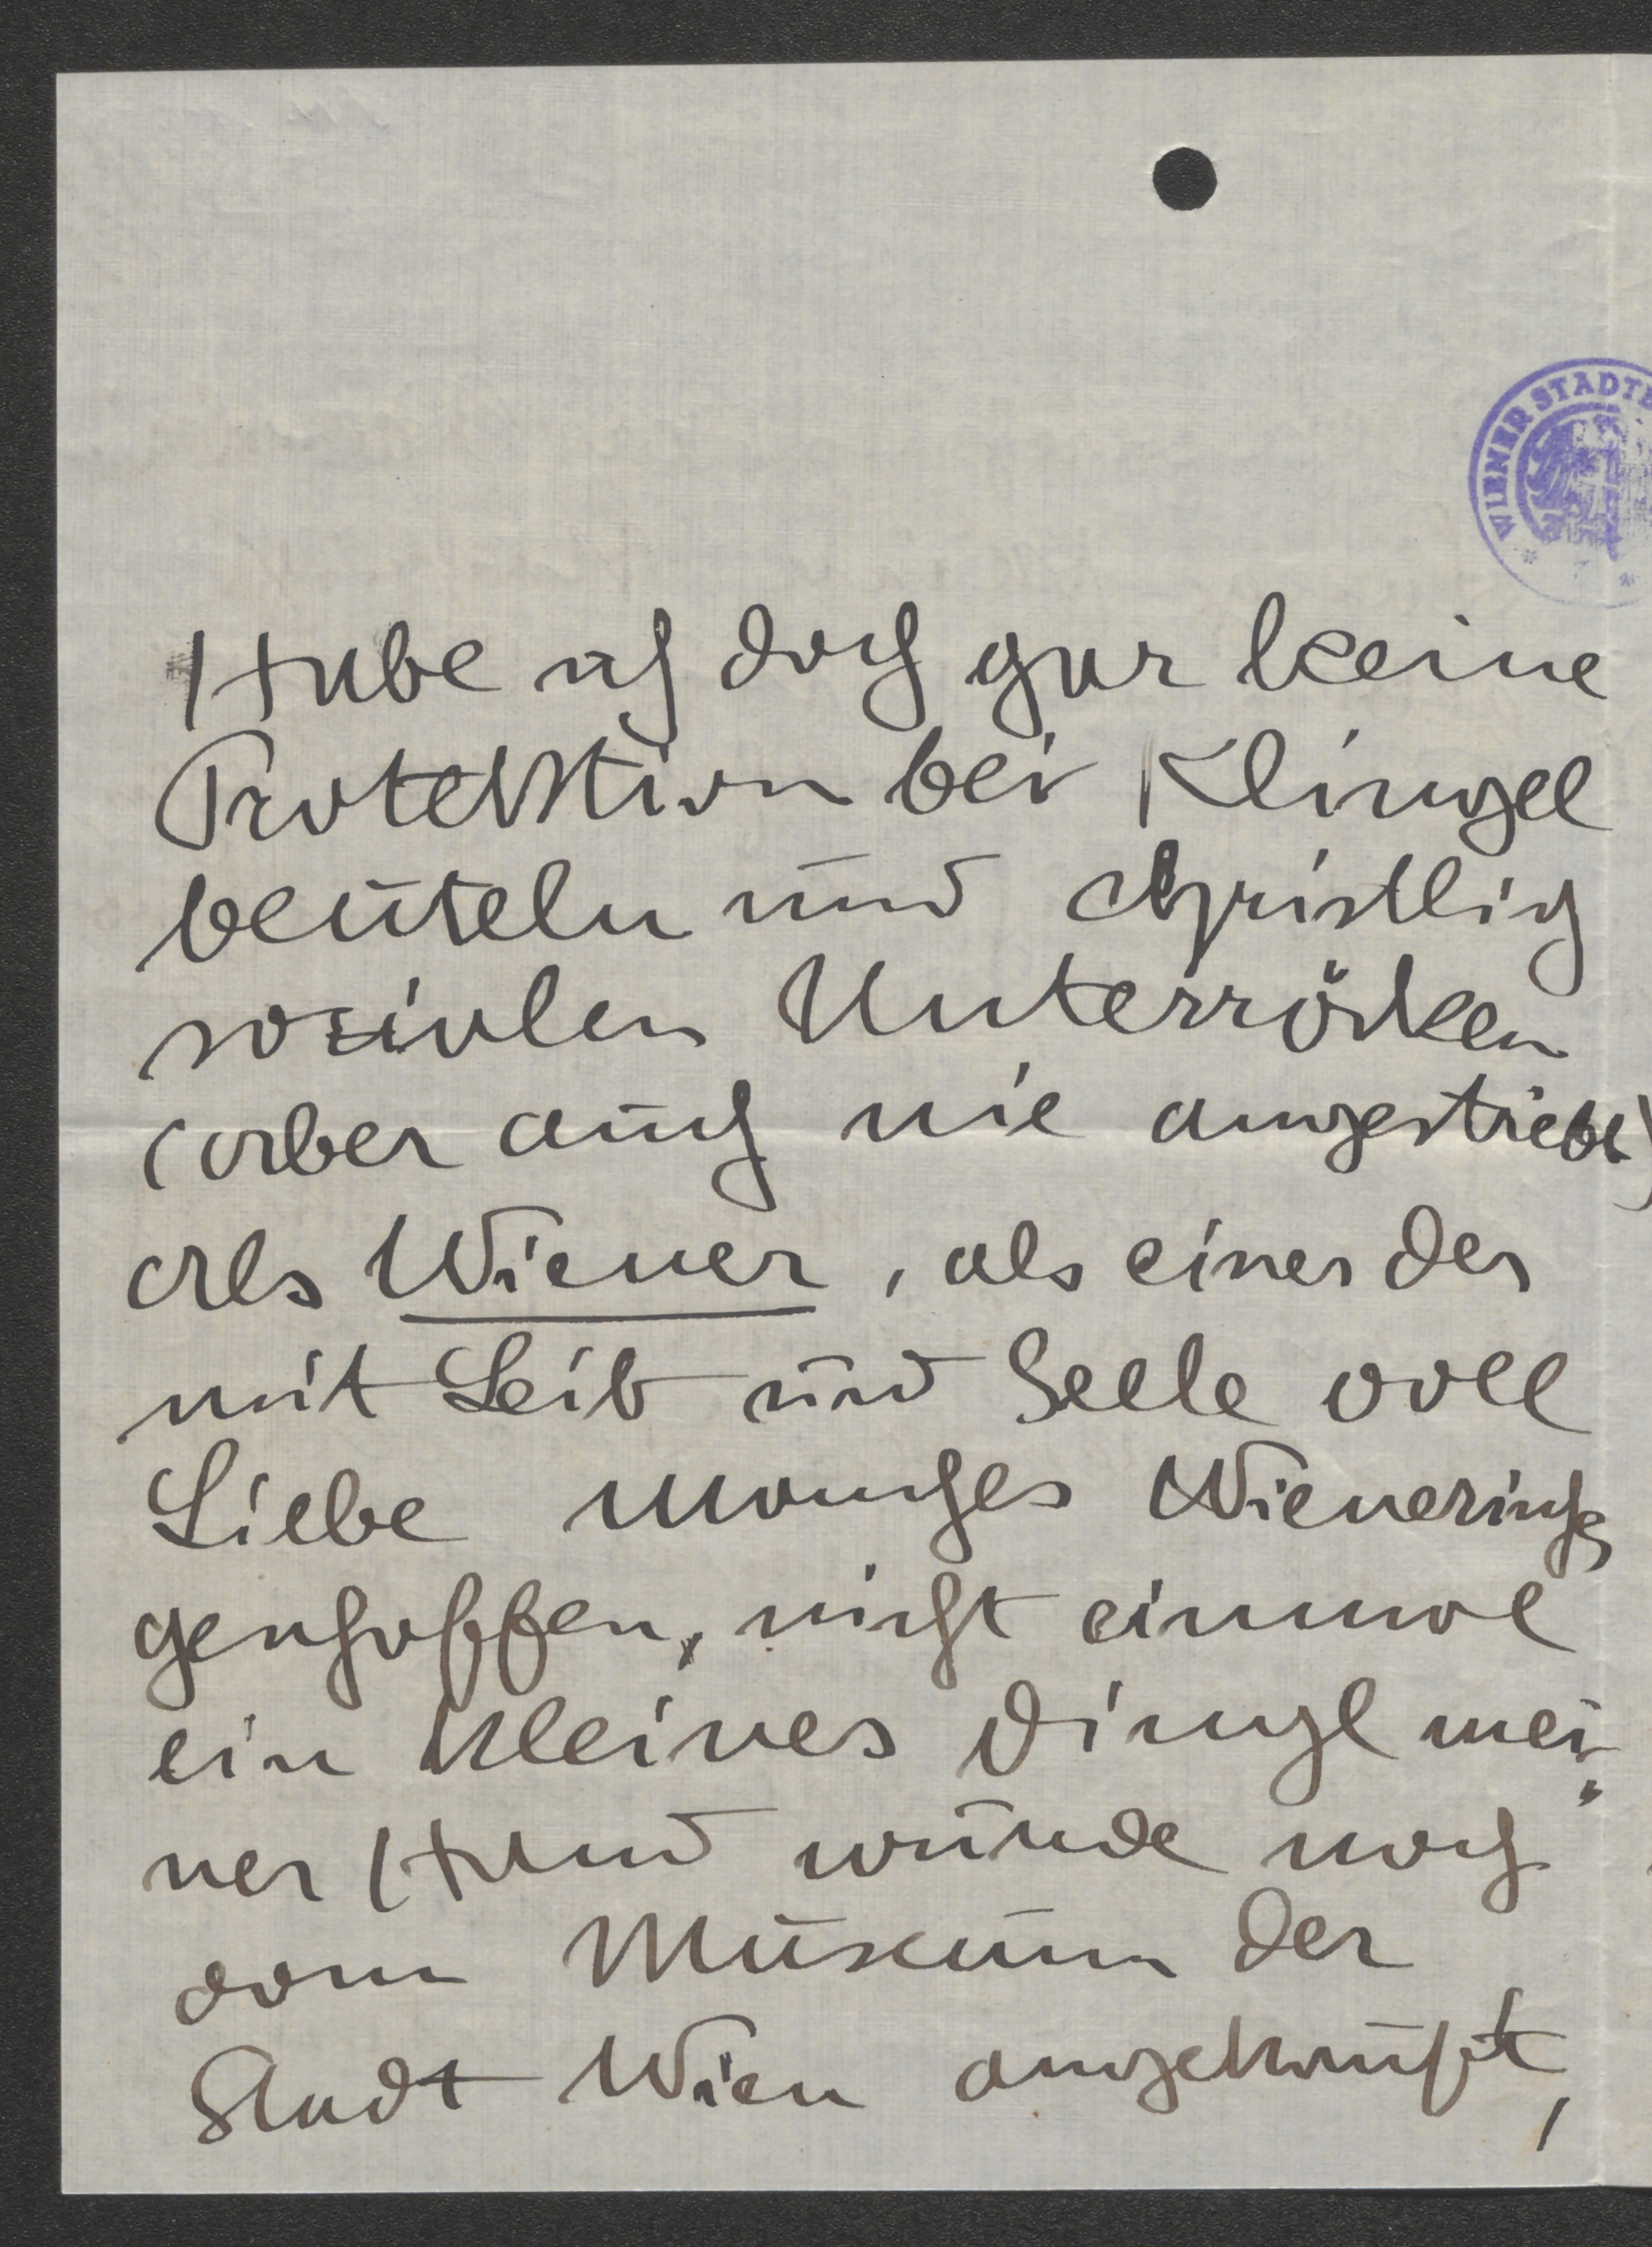 WIENER STADTB
Habe ich doch gar keine
Protektion bei Klingel
beuteln und christlich
sozialen Unterröcken
(aber auch nie angestrebt)
als Wiener, als einer der
mit Leib und Seele voll
Liebe manches Wienerische
geschaffen, nicht einmal
ein kleines Dingl mei-
ner Hand wurde noch
vom Museum der
Stadt Wien angekauft,